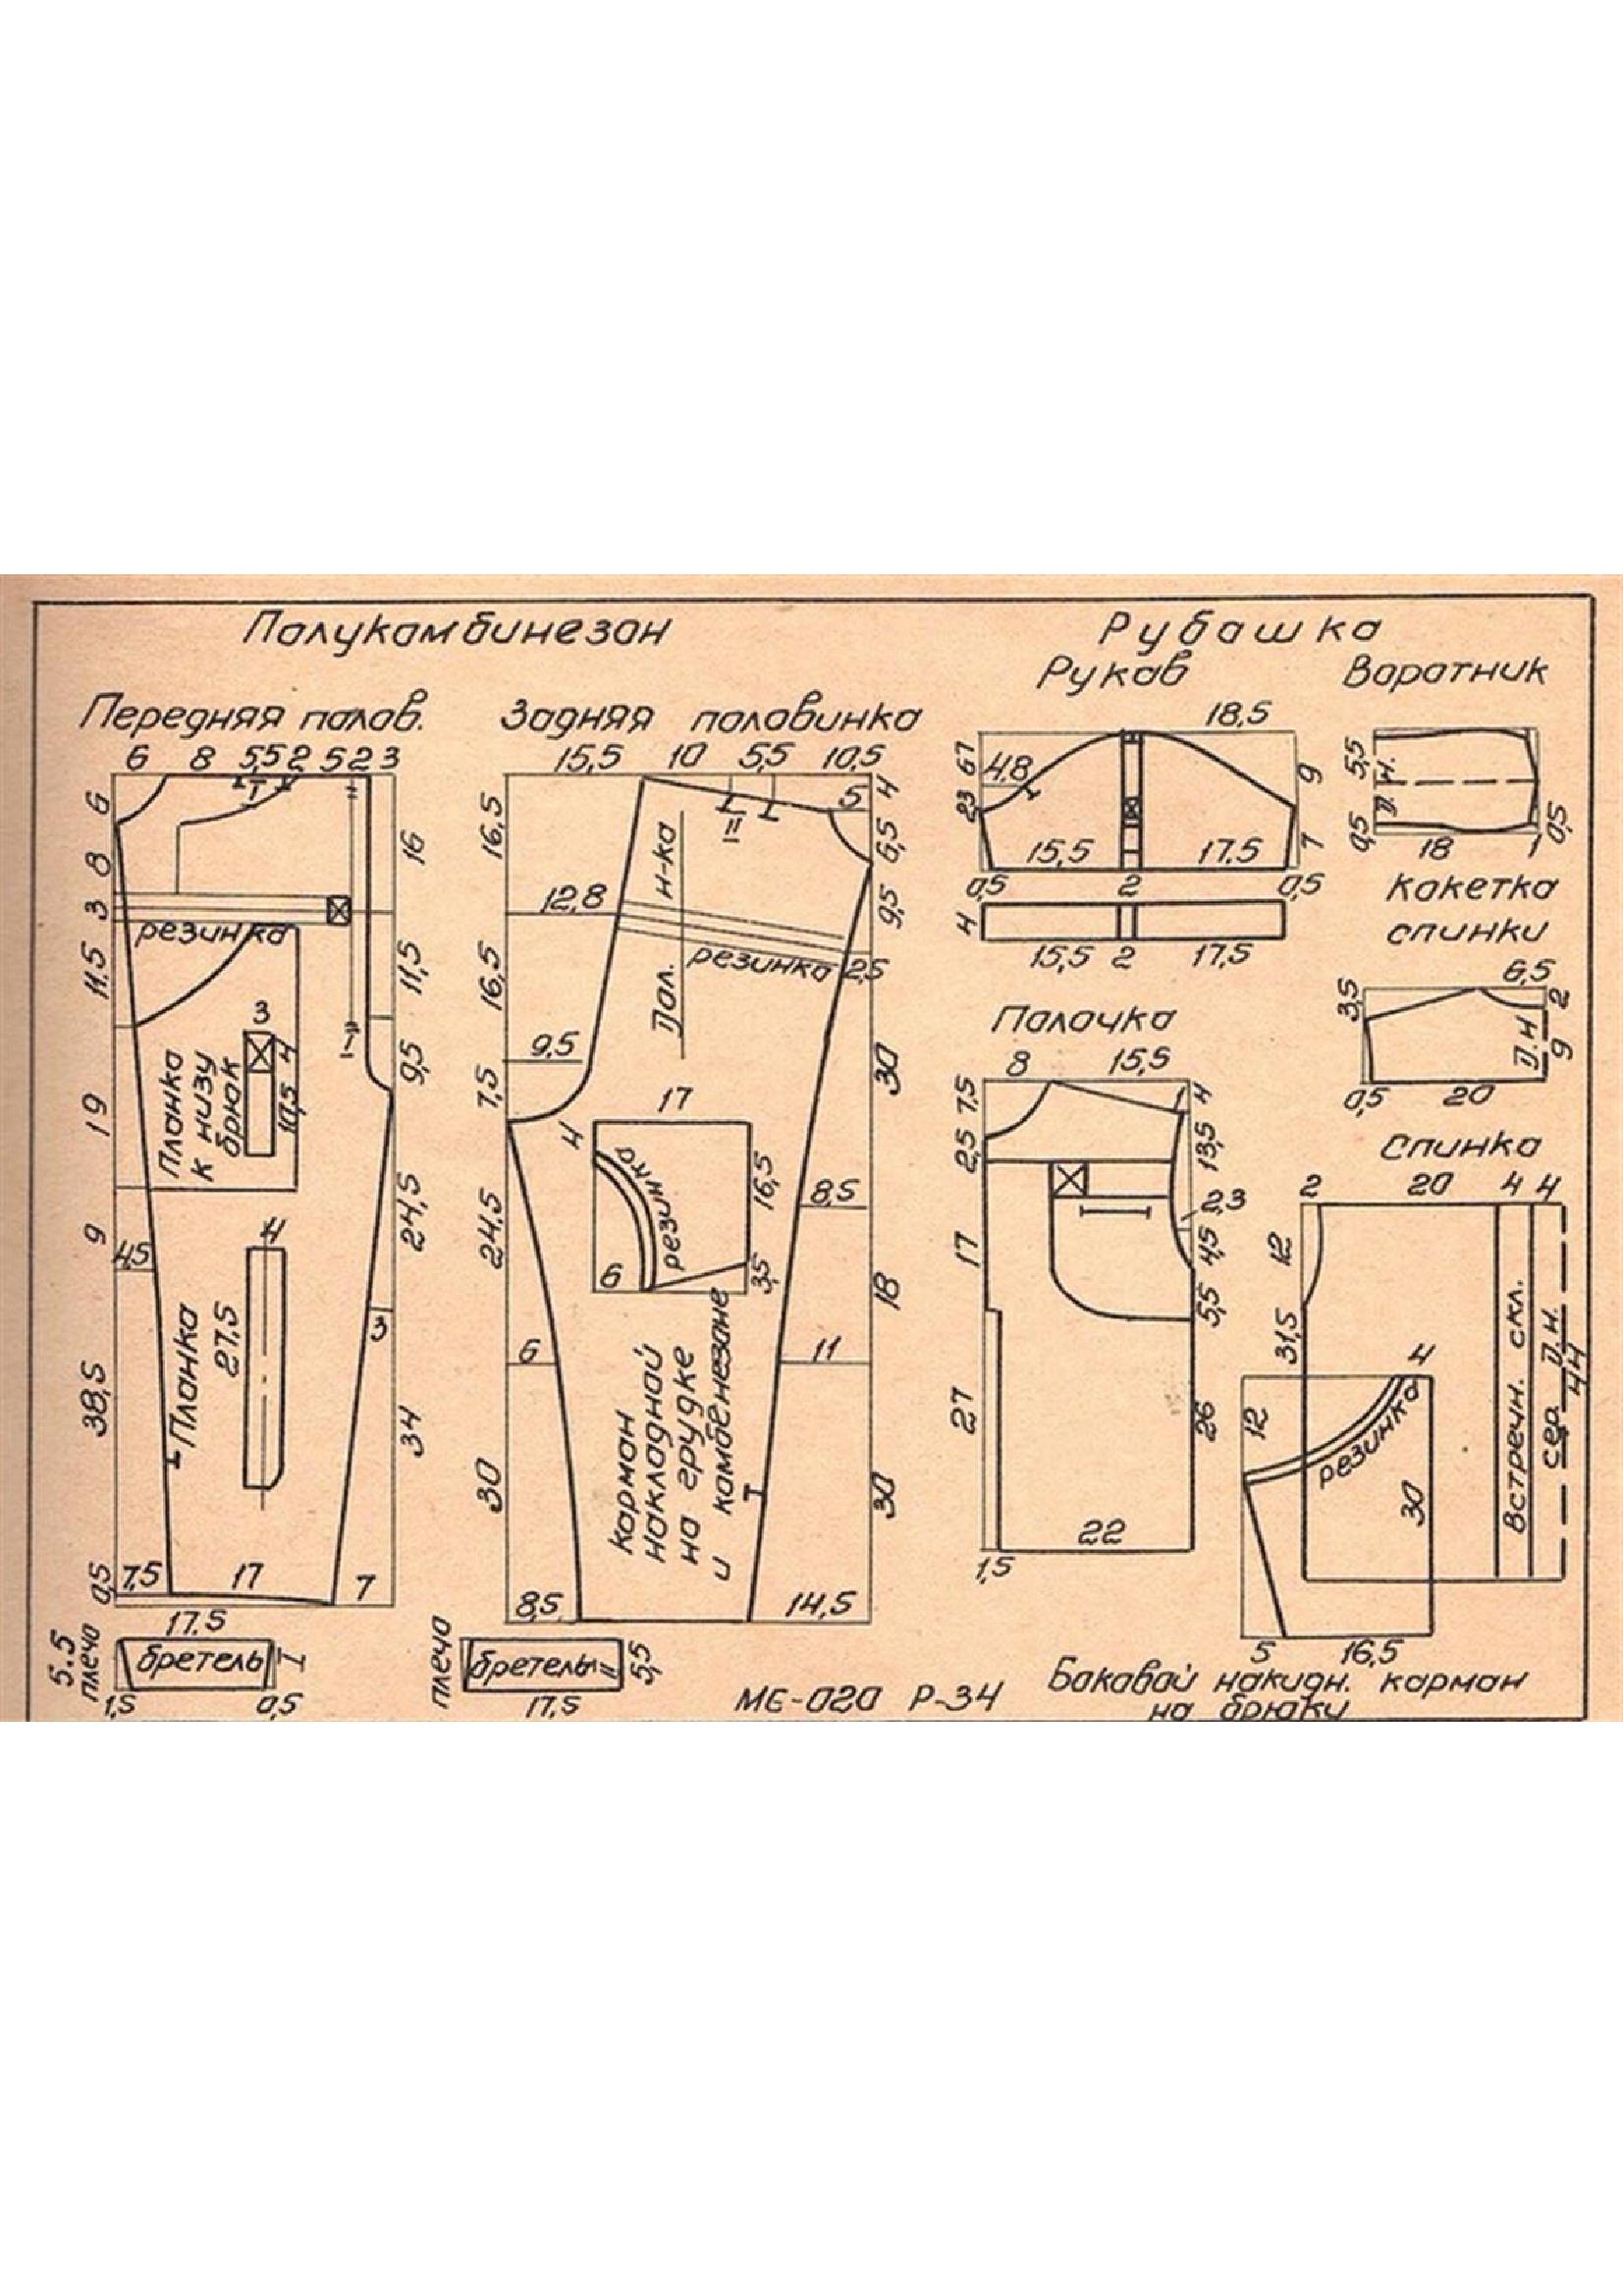 Полукамбинезон
Рубашка
Рукав
Воратник
Передняя полов.
Задняя половинка
6 8 5,5 2 5 2 3
15,5 10 5,5 10,5
18,5
6
8
3
11,5
19
9
38,5
0,5
16
11,5
9,5
24,5
34
резинка
I
I
Планка
к низу
брюк
3
4
10,5
4,5
3
Планка
27,5
4
7,5 17 7
16,5
16,5
7,5
24,5
30
12,8
9,5
6
8,5
II
н-ка
Дол.
резинка
2,5
5
4
6,5
9,5
30
8,5
18
11
30
14,5
17
4
резинка
16,5
6
3,5
карман
накладной
на грудке
и камбенезане
5.5
плечо
17.5
бретель
I
1,5 0,5
плечо
бретель
II
5,5
17,5
МЕ-020 Р-34
67
4,8
23
9
7
15,5 17.5
0,5 2 0,5
4
15,5 2 17,5
5,5
Д.Н.
0,5
18 1
0,5
Кокетка
спинки
6,5
3,5
2
Д.Н
9
0,5 20
Полочка
8 15,5
7,5
2,5
17
27
1
4
13,5
2,3
4,5
5,5
26
22
1,5
Спинка
2 20 4 4
12
31,5
Встречн. скл.
сер. Д.Н.
44
4
12
резинка
30
5 16,5
Баковой накидн. карман
на брюки